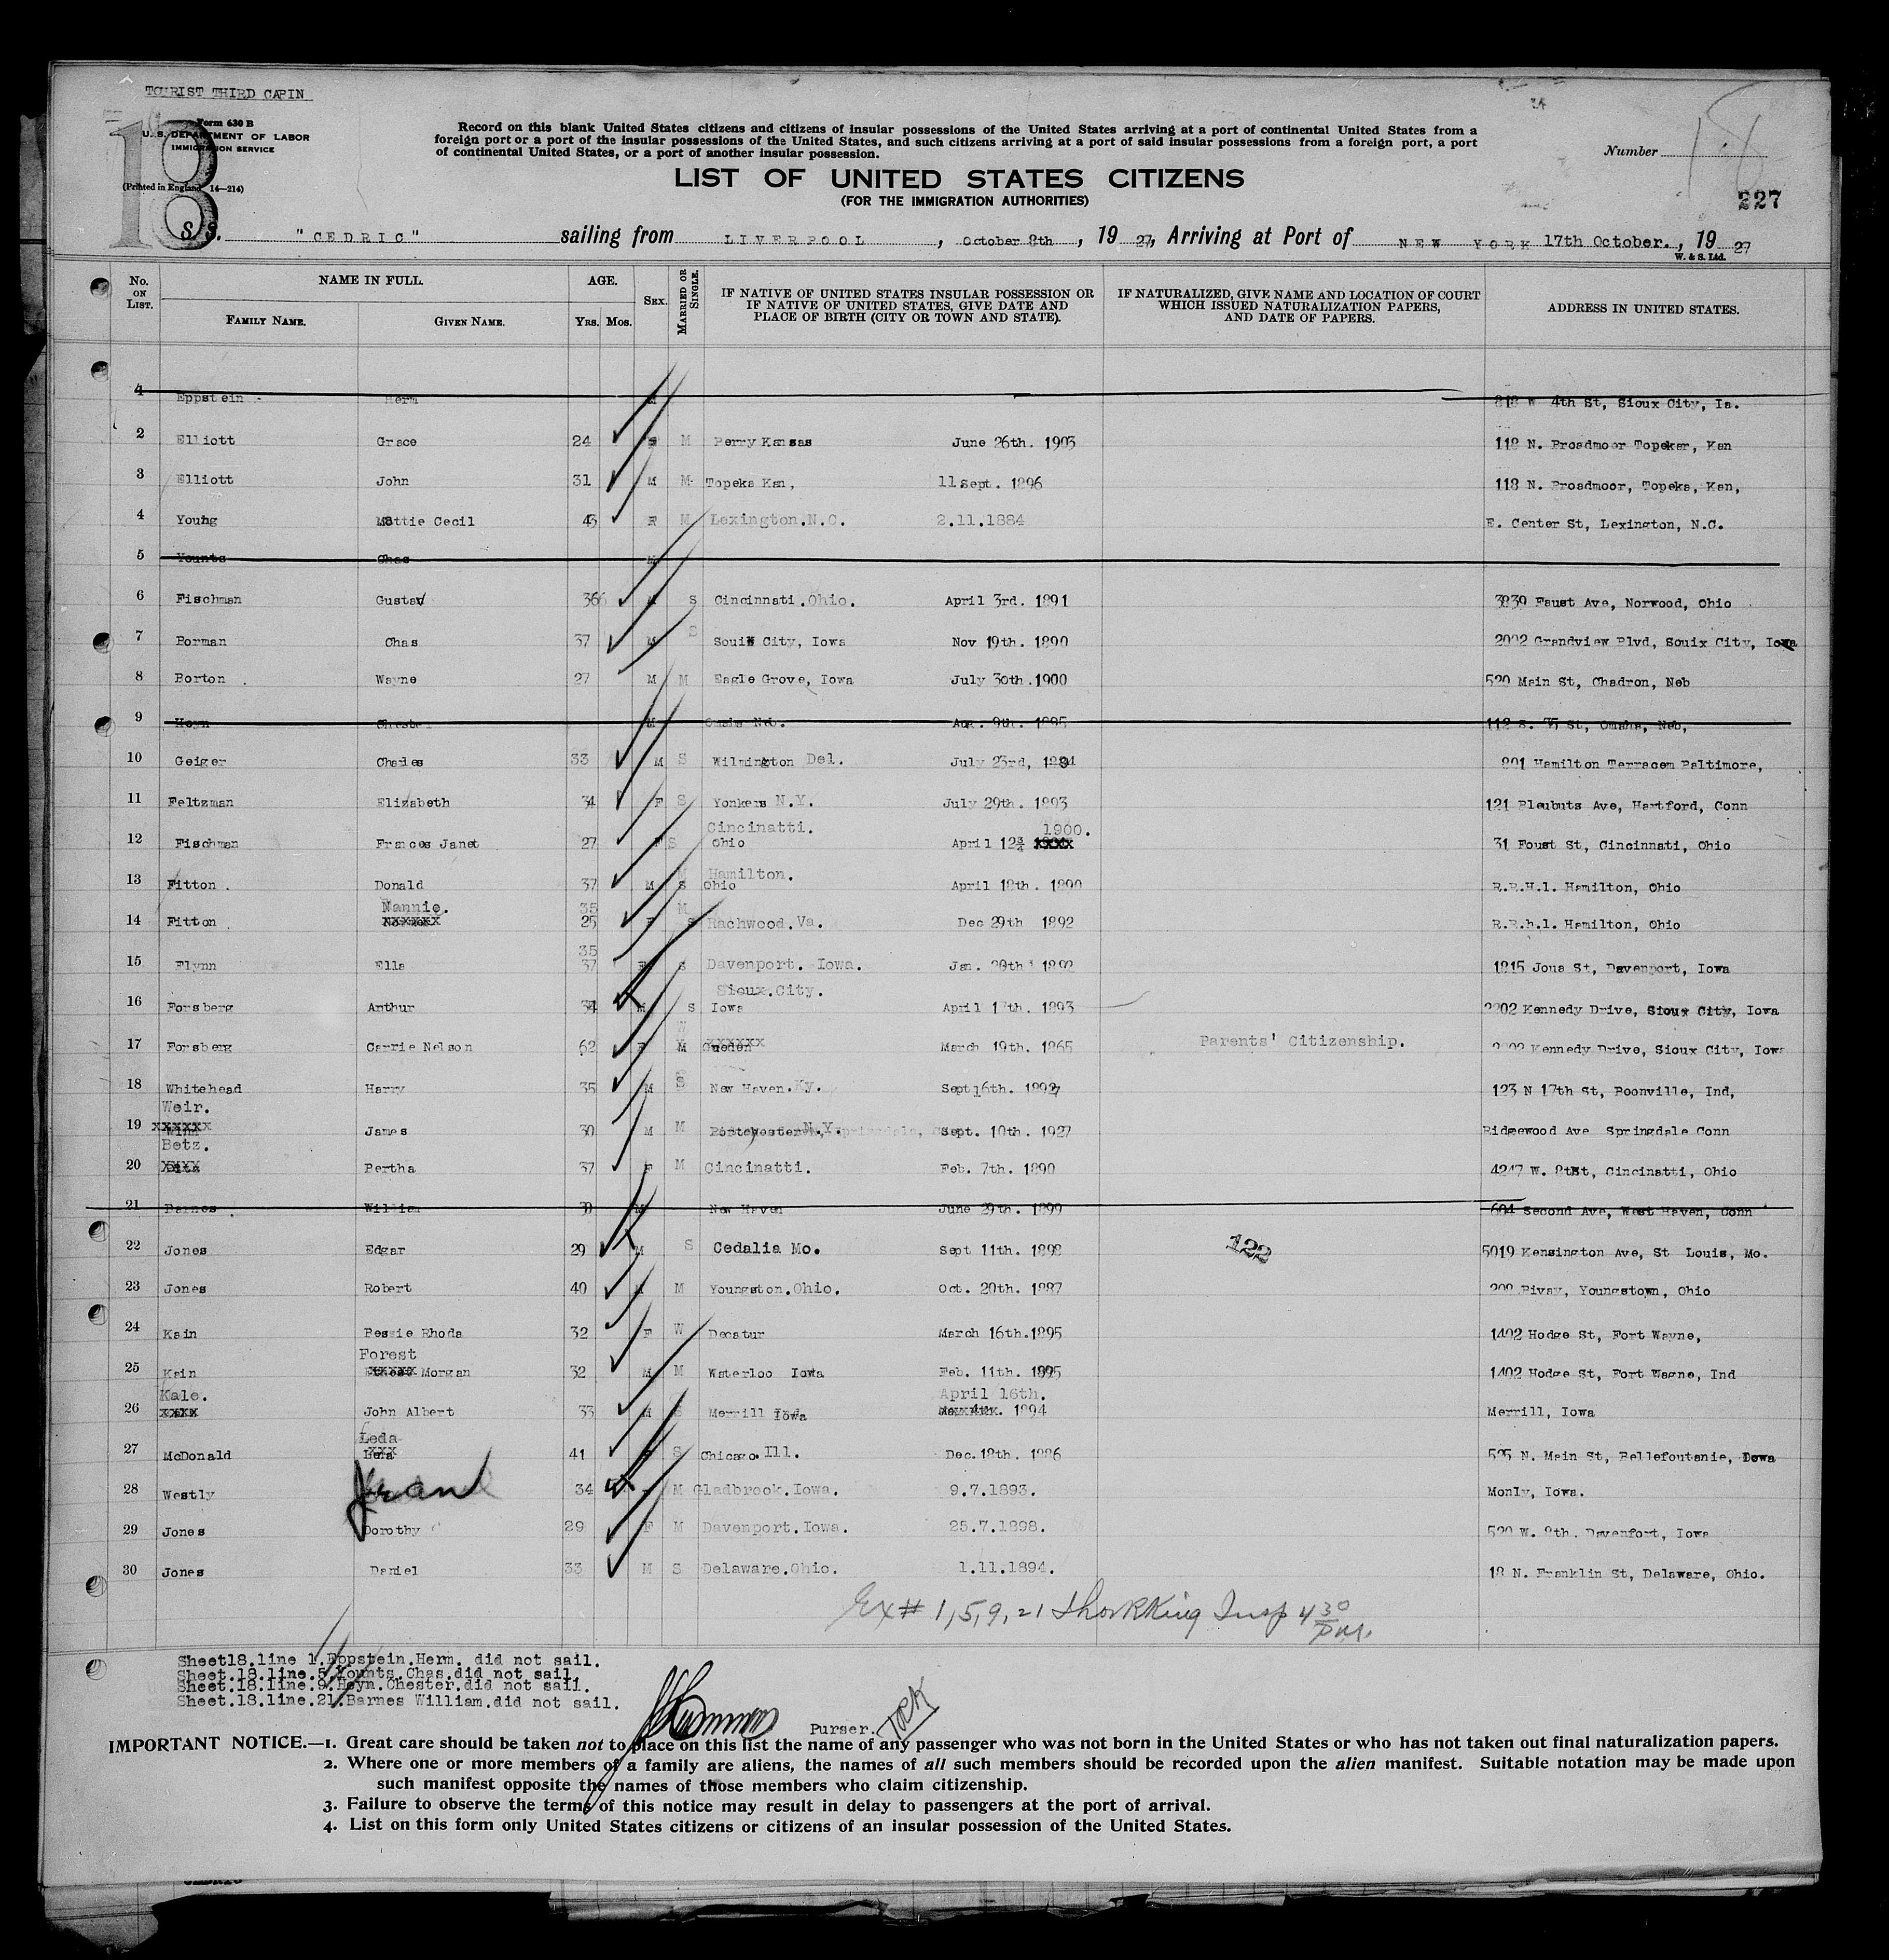 TOURIST THIRD CABIN
18
Form 630 B
U. S. DEPARTMENT OF LABOR
IMMIGRATION SERVICE
(Printed in England, 14—214)
Record on this blank United States citizens and citizens of insular possessions of the United States arriving at a port of continental United States from a
foreign port or a port of the insular possessions of the United States, and such citizens arriving at a port of said insular possessions from a foreign port, a port
of continental United States, or a port of another insular possession.
Number 18
227
LIST OF UNITED STATES CITIZENS
(FOR THE IMMIGRATION AUTHORITIES)
S. S. "CEDRIC" sailing from LIVERPOOL, October 8th, 1927, Arriving at Port of NEW YORK 17th October., 1927
W. & S. Ltd.
No. ON LIST. NAME IN FULL. FAMILY NAME. GIVEN NAME. AGE. YRS. MOS. SEX. MARRIED OR SINGLE. IF NATIVE OF UNITED STATES INSULAR POSSESSION OR IF NATIVE OF UNITED STATES, GIVE DATE AND PLACE OF BIRTH (CITY OR TOWN AND STATE). IF NATURALIZED, GIVE NAME AND LOCATION OF COURT WHICH ISSUED NATURALIZATION PAPERS, AND DATE OF PAPERS. ADDRESS IN UNITED STATES.
Eppstein Herm M W 4th St, Sioux City, Ia.
2 Elliott Grace 24 M Perry Kansas June 26th. 1903 118 N. Broadmoor Topekar, Kan
3 Elliott John 31 M M Topeka Kan, 11 Sept. 1896 118 N. Broadmoor, Topeka, Kan,
4 Young Mattie Cecil 43 F M Lexington.N.C. 2.11.1884 E. Center St, Lexington, N.C.
5 Younts Chas M
6 Fischman Gustav 36 M S Cincinnati.Ohio. April 3rd. 1891 3839 Faust Ave, Norwood, Ohio
7 Borman Chas 37 M S Souix City, Iowa Nov 19th. 1890 2002 Grandview Blvd, Souix City, Iowa
8 Borton Wayne 27 M M Eagle Grove, Iowa July 30th.1900 520 Main St, Chadron, Neb
9 Heyn Chester M Omaha Neb. Aug. 9th. 1895 112 S. 35 St, Omaha, Neb,
10 Geiger Charles 33 M S Wilmington Del. July 23rd, 1894 801 Hamilton Terracem Baltimore,
11 Feltzman Elizabeth 34 F S Yonkers N.Y. July 29th. 1893 121 Ave, Hartford, Conn
Cincinatti. 1900.
12 Fischman Frances Janet 27 F S Ohio April 12 xxxx 31 Foust St, Cincinnati, Ohio
Hamilton.
13 Fitton Donald 37 M S Ohio April 18th. 1890 R.R.H.1. Hamilton, Ohio
Nannie. 35 M
14 Fitton xxxxxx 25 F S Rachwood.Va. Dec 29th 1892 R.R.h.1. Hamilton, Ohio
35
15 Flynn Ella 37 F S Davenport. Iowa. Jan. 20th 1892 1815 Jous St, Davenport, Iowa
Sioux.City.
16 Forsberg Arthur 34 M S Iowa April 17th. 1893 2202 Kennedy Drive, Sioux City, Iowa
W
17 Forsberg Carrie Nelson 62 F M Sweden March 19th. 1865 Parents' Citizenship. Kennedy Drive, Sioux City, Iowa
18 Whitehead Harry 35 M S New Haven.Ky. Sept 16th. 1892 123 N 17th St, Boonville, Ind,
Weir.
19 xxxxxx James 30 M M Portchester N.Y. Sept. 10th. 1927 Ridgewood Ave Springdale Conn
Betz.
20 xxxx Bertha 37 F M Cincinatti. Feb. 7th. 1890 4247 W. 8tht, Cincinatti, Ohio
21 Barnes William M New Haven June 29th. 1899 604 Second Ave, West Haven, Conn
22 Jones Edgar 29 M S Cedalia Mo. Sept 11th. 1898 122 5019 Kensington Ave, St Louis, Mo.
23 Jones Robert 40 M M Youngston.Ohio. Oct. 20th. 1887 Youngstown, Ohio
24 Kain Bessie Rhoda 32 F W Decatur March 16th.1895 1402 Hodge St, Fort Wayne,
Forest
25 Kain xxxxx Morgan 32 M M Waterloo Iowa Feb. 11th. 1895 1402 Hodge St, Fort Wagne, Ind
Kale. April 16th.
26 xxxx John Albert 33 M S Merrill Iowa xxxxxx. 1894 Merrill, Iowa
Leda
27 McDonald xxx 41 F S Chicago.Ill. Dec.18th. 1886 N. Main St, Bellefoutanie, Iowa
28 Westly 34 M Gladbrook.Iowa. 9.7.1893. Monly, Iowa.
29 Jones Dorothy 29 F M Davenport.Iowa. 25.7.1898. 520 W. 8th. Davenfort, Iowa
30 Jones Daniel 33 M S Delaware.Ohio. 1.11.1894. 18 N. Franklin St, Delaware, Ohio.
Ex# 1,5,9,21 Insp 4 30 P.M.
Sheet18.line 1.Eppstein.Herm. did not sail.
Sheet.18.line.5.Younts.Chas.did not sail.
Sheet.18.line.9.Heyn.Chester.did not sail.
Sheet.18.line.21.Barnes William.did not sail.
Purser.
IMPORTANT NOTICE.—1. Great care should be taken not to place on this list the name of any passenger who was not born in the United States or who has not taken out final naturalization papers.
2. Where one or more members of a family are aliens, the names of all such members should be recorded upon the alien manifest. Suitable notation may be made upon
such manifest opposite the names of those members who claim citizenship.
3. Failure to observe the terms of this notice may result in delay to passengers at the port of arrival.
4. List on this form only United States citizens or citizens of an insular possession of the United States.